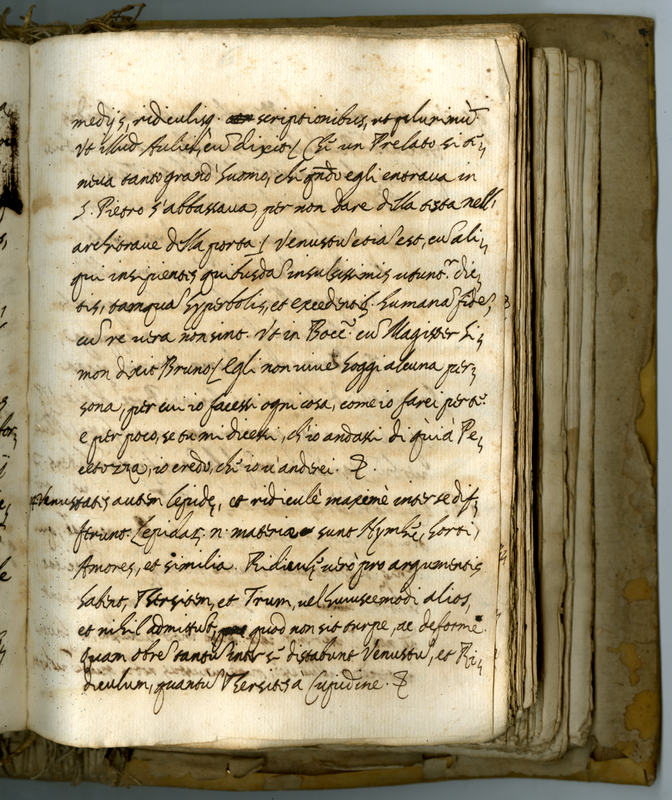 medijs, ridiculisq. scriptionibus, ut plurimū
Ut illud Aulici, cū dixit / Ch'i un Prelato si te,
neva tanto grand' huomo, ch'i qn̄do egli entrava in
S. Pietro s'abbassava, per non dare della testa nell'
architrave della porta / Venustū etiā est, cū ali,
qui insipientes quibusdā insulsissimis utunt.r dic,
tis, tamquā hyperbolis, et excedentib. humanā fidē,
cū re vera non sint. Ut in Bocc. cū Magister Si,
mon dixit Bruno / Egli non vive hoggi alcuna per,
sona, per cui io facessi ogni cosa, come io farei per te:
e per poco, se tu mi dicessi, ch'io andassi di quì à Pe,
cetozza, io credo, ch'io v'anderei.
Venustatis autem lepidę, et ridiculę maximè inter se dif,
ferunt. Lepidae. n. materiae sunt Nymphę, horti,
Amores, et similia. Ridiculę verò pro argumentis
habent, Thersitem, et Irum, vel huiuscemodi alios,
et nihil admittūt, quod non sit turpe, ac deforme.
quam obrē tantū inter sē distabunt Venustū, et Ri,
diculum, quantū Thersites à Cupidine.